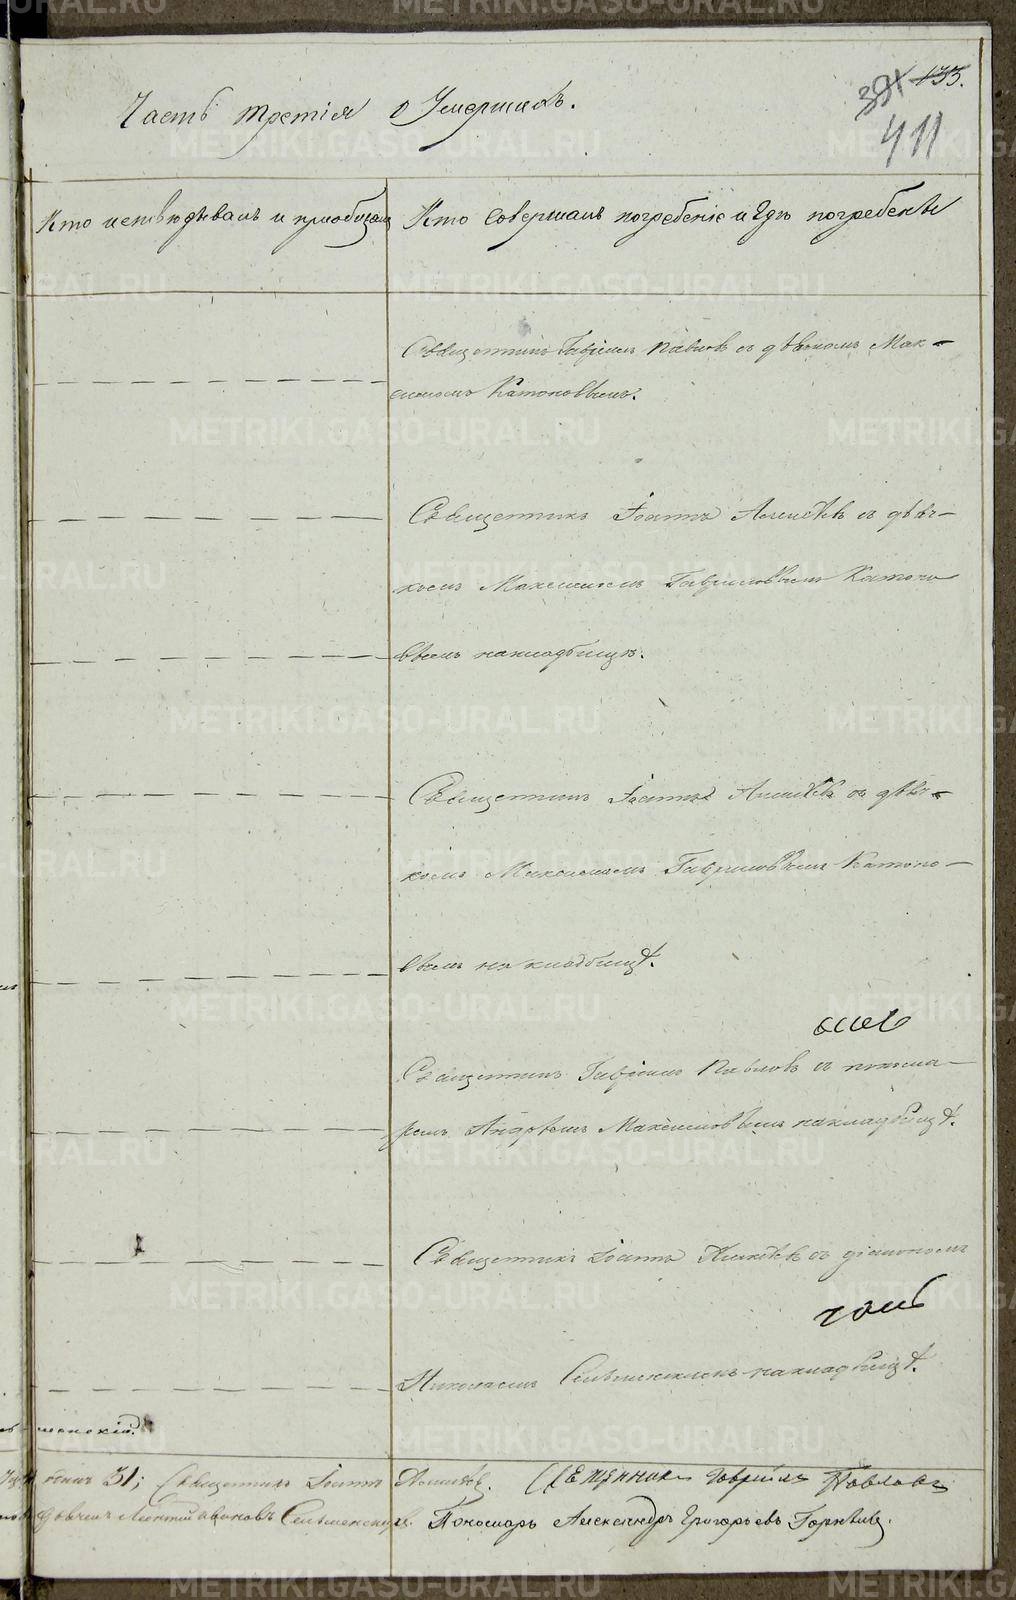 391 135.
411
Часть третія о Умершихъ.
Кто исповѣдывалъ и пріобщалъ
Кто совершалъ погребеніе и гдѣ погребены
Священникъ Гавріилъ Павловъ съ дьякомъ Мак-
симомъ Катоновымъ.
Священникъ Іоаннъ Алексѣевъ съ дьяч-
комъ Максимомъ Гавриловымъ Катоно
вымъ на кладбищѣ.
Священникъ Іоаннъ Алексѣевъ съ дьяч-
комъ Максимомъ Гавриловымъ Катоно-
вымъ на кладбищѣ.
Священникъ Гавріилъ Павловъ съ понома-
ремъ Андреемъ Максимовымъ на кладбищѣ.
Священникъ Іоаннъ Алексѣевъ съ діакономъ
Николаемъ на кладбищѣ.
менскій
31; Священникъ Іоаннъ Священникъ Гавріилъ Павловъ
Пономарь Александръ Григорьевъ
METRIKI.GASO-URAL.RU